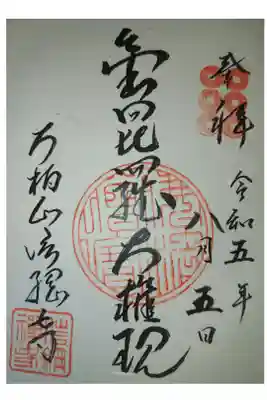 奉拝
令和五年
八月五日
金毘羅大権現
大柏山信綱寺